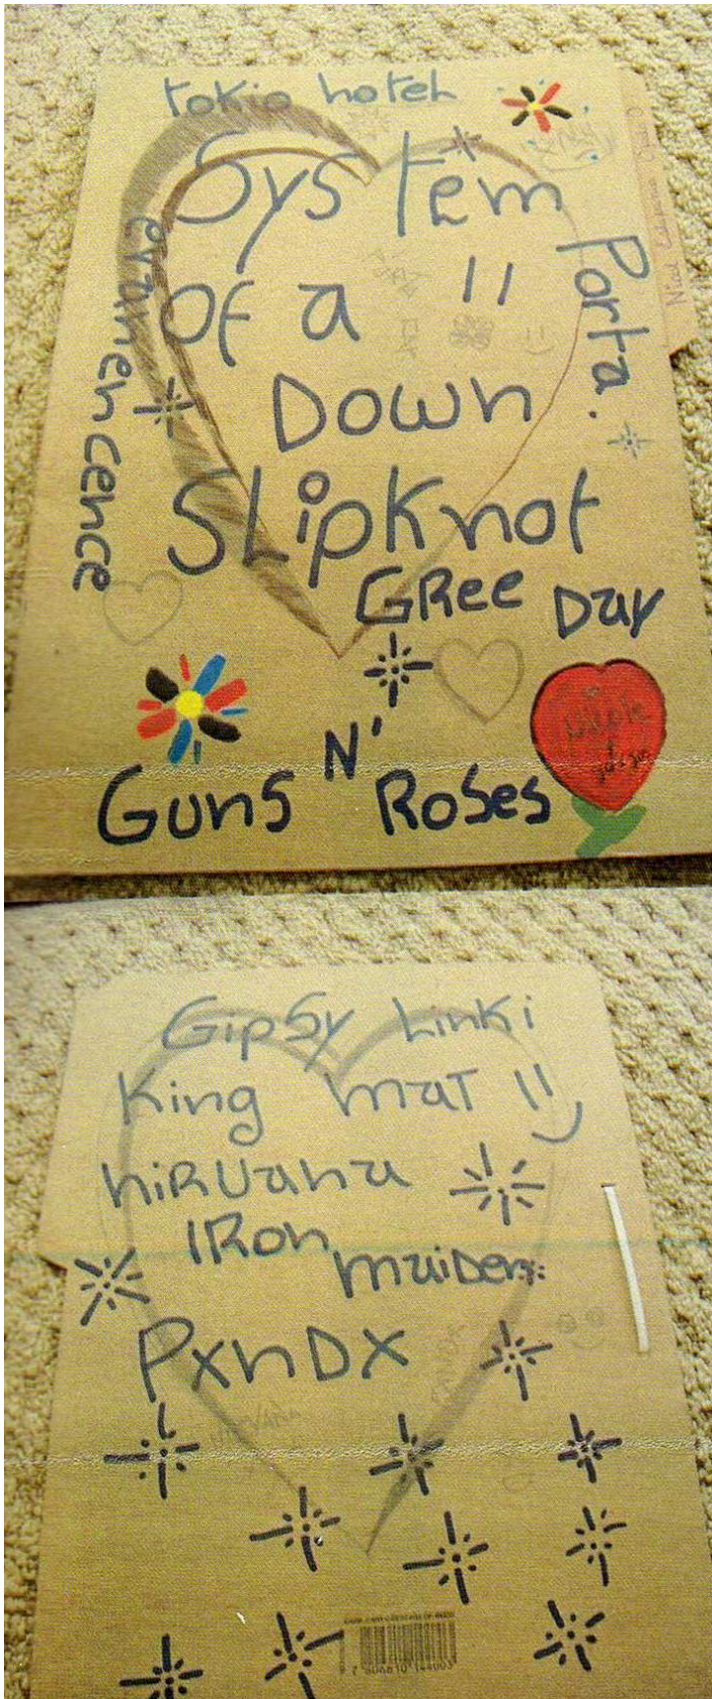 tokio hotel
System
of a
Down
evanencence
Porta.
SLipKnot
GRee Day
Guns N' Roses
Gipsy Linki
King mat
niRvana
IRon maiden
PxnDx